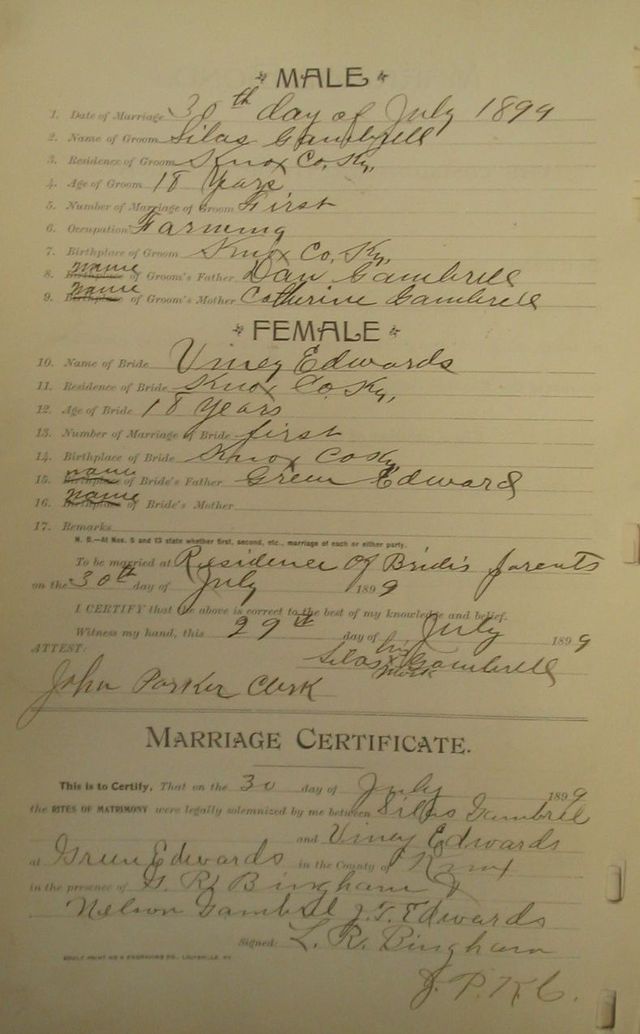 MALE
1. Date of Marriage 30th day of July 1899
2. Name of Groom Silas Gambrell
3. Residence of Groom Knox Co, Ky,
4. Age of Groom 18 Years
5. Number of Marriage of Groom First
6. Occupation Farming
7. Birthplace of Groom Knox Co, Ky,
8. Birthplace name of Groom's Father Dan Gambrell
9. Birthplace name of Groom's Mother Catherine Gambrell
FEMALE
10. Name of Bride Viney Edwards
11. Residence of Bride Knox Co, Ky,
12. Age of Bride 18 Years
13. Number of Marriage of Bride first
14. Birthplace of Bride Knox Co Ky
15. Birthplace name of Bride's Father Green Edward
16. Birthplace name of Bride's Mother
17. Remarks
N. B.—At Nos. 5 and 13 state whether first, second, etc., marriage of each or either party.
To be married at Residence of Bride's parents
on the 30th day of July 1899
I CERTIFY that the above is correct to the best of my knowledge and belief.
Witness my hand, this 29th day of July 1899
ATTEST: Silas his x mark Gambrell
John Parker Clerk
MARRIAGE CERTIFICATE.
This is to Certify, That on the 30 day of July 1899
the RITES OF MATRIMONY were legally solemnized by me between Silas Gambrel
and Viney Edwards
at Green Edwards in the County of Knox
in the presence of G. R. Bingham &
Nelson Gambrel J. T. Edwards
Signed: L. R. Bingham
J. P. K. C.